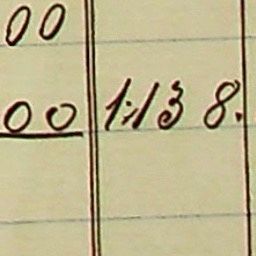 00
00 1:138.